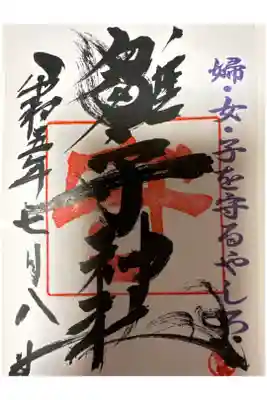 婦・女・子を守るやしろ・
子神社
令和五年七月八日